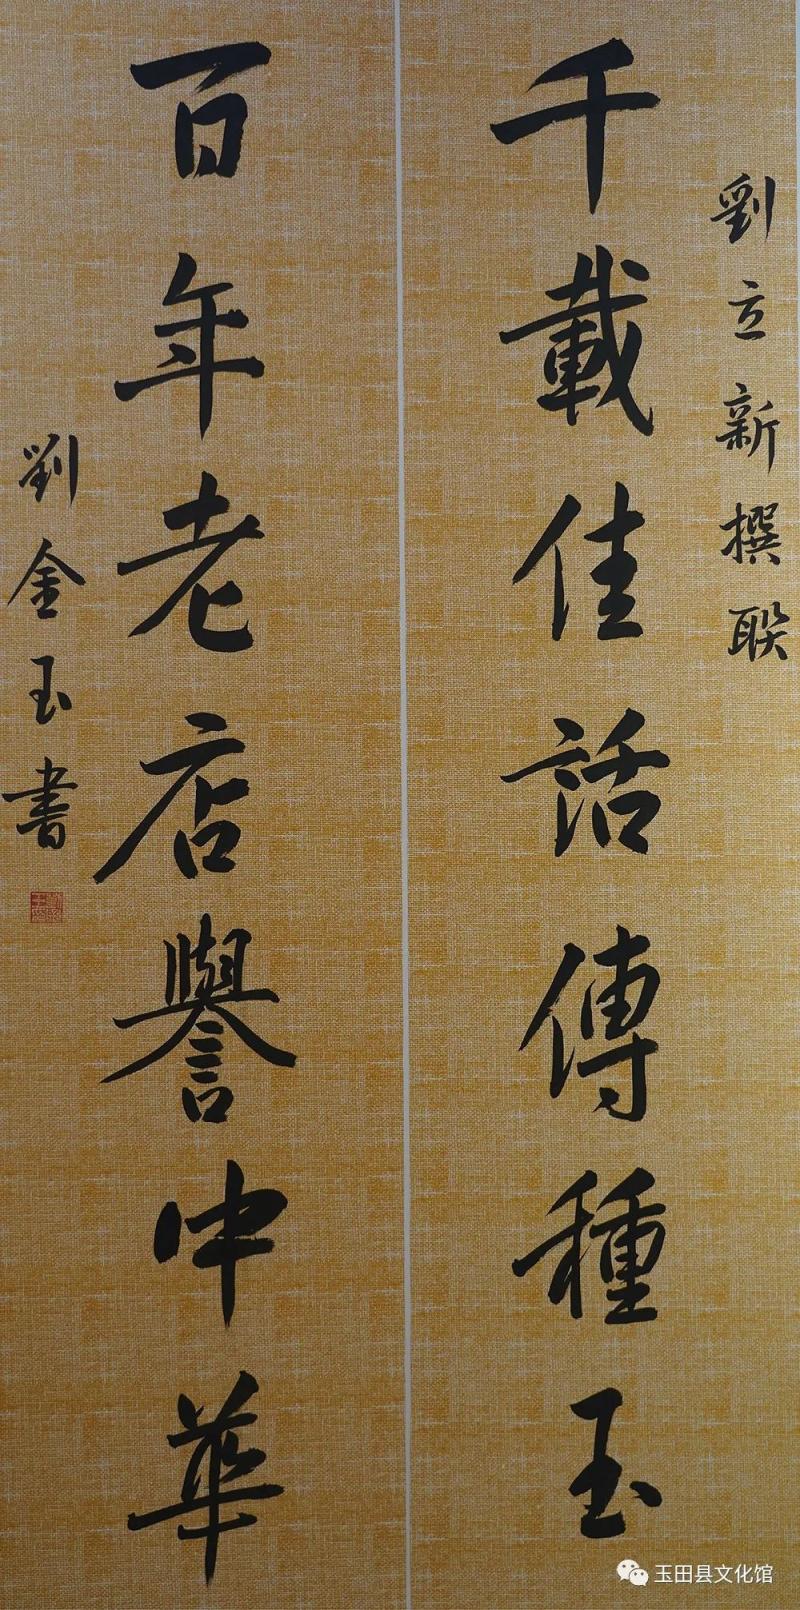 劉立新撰联
千載佳話傳種玉
百年老店譽中華
劉金玉書
玉田县文化馆